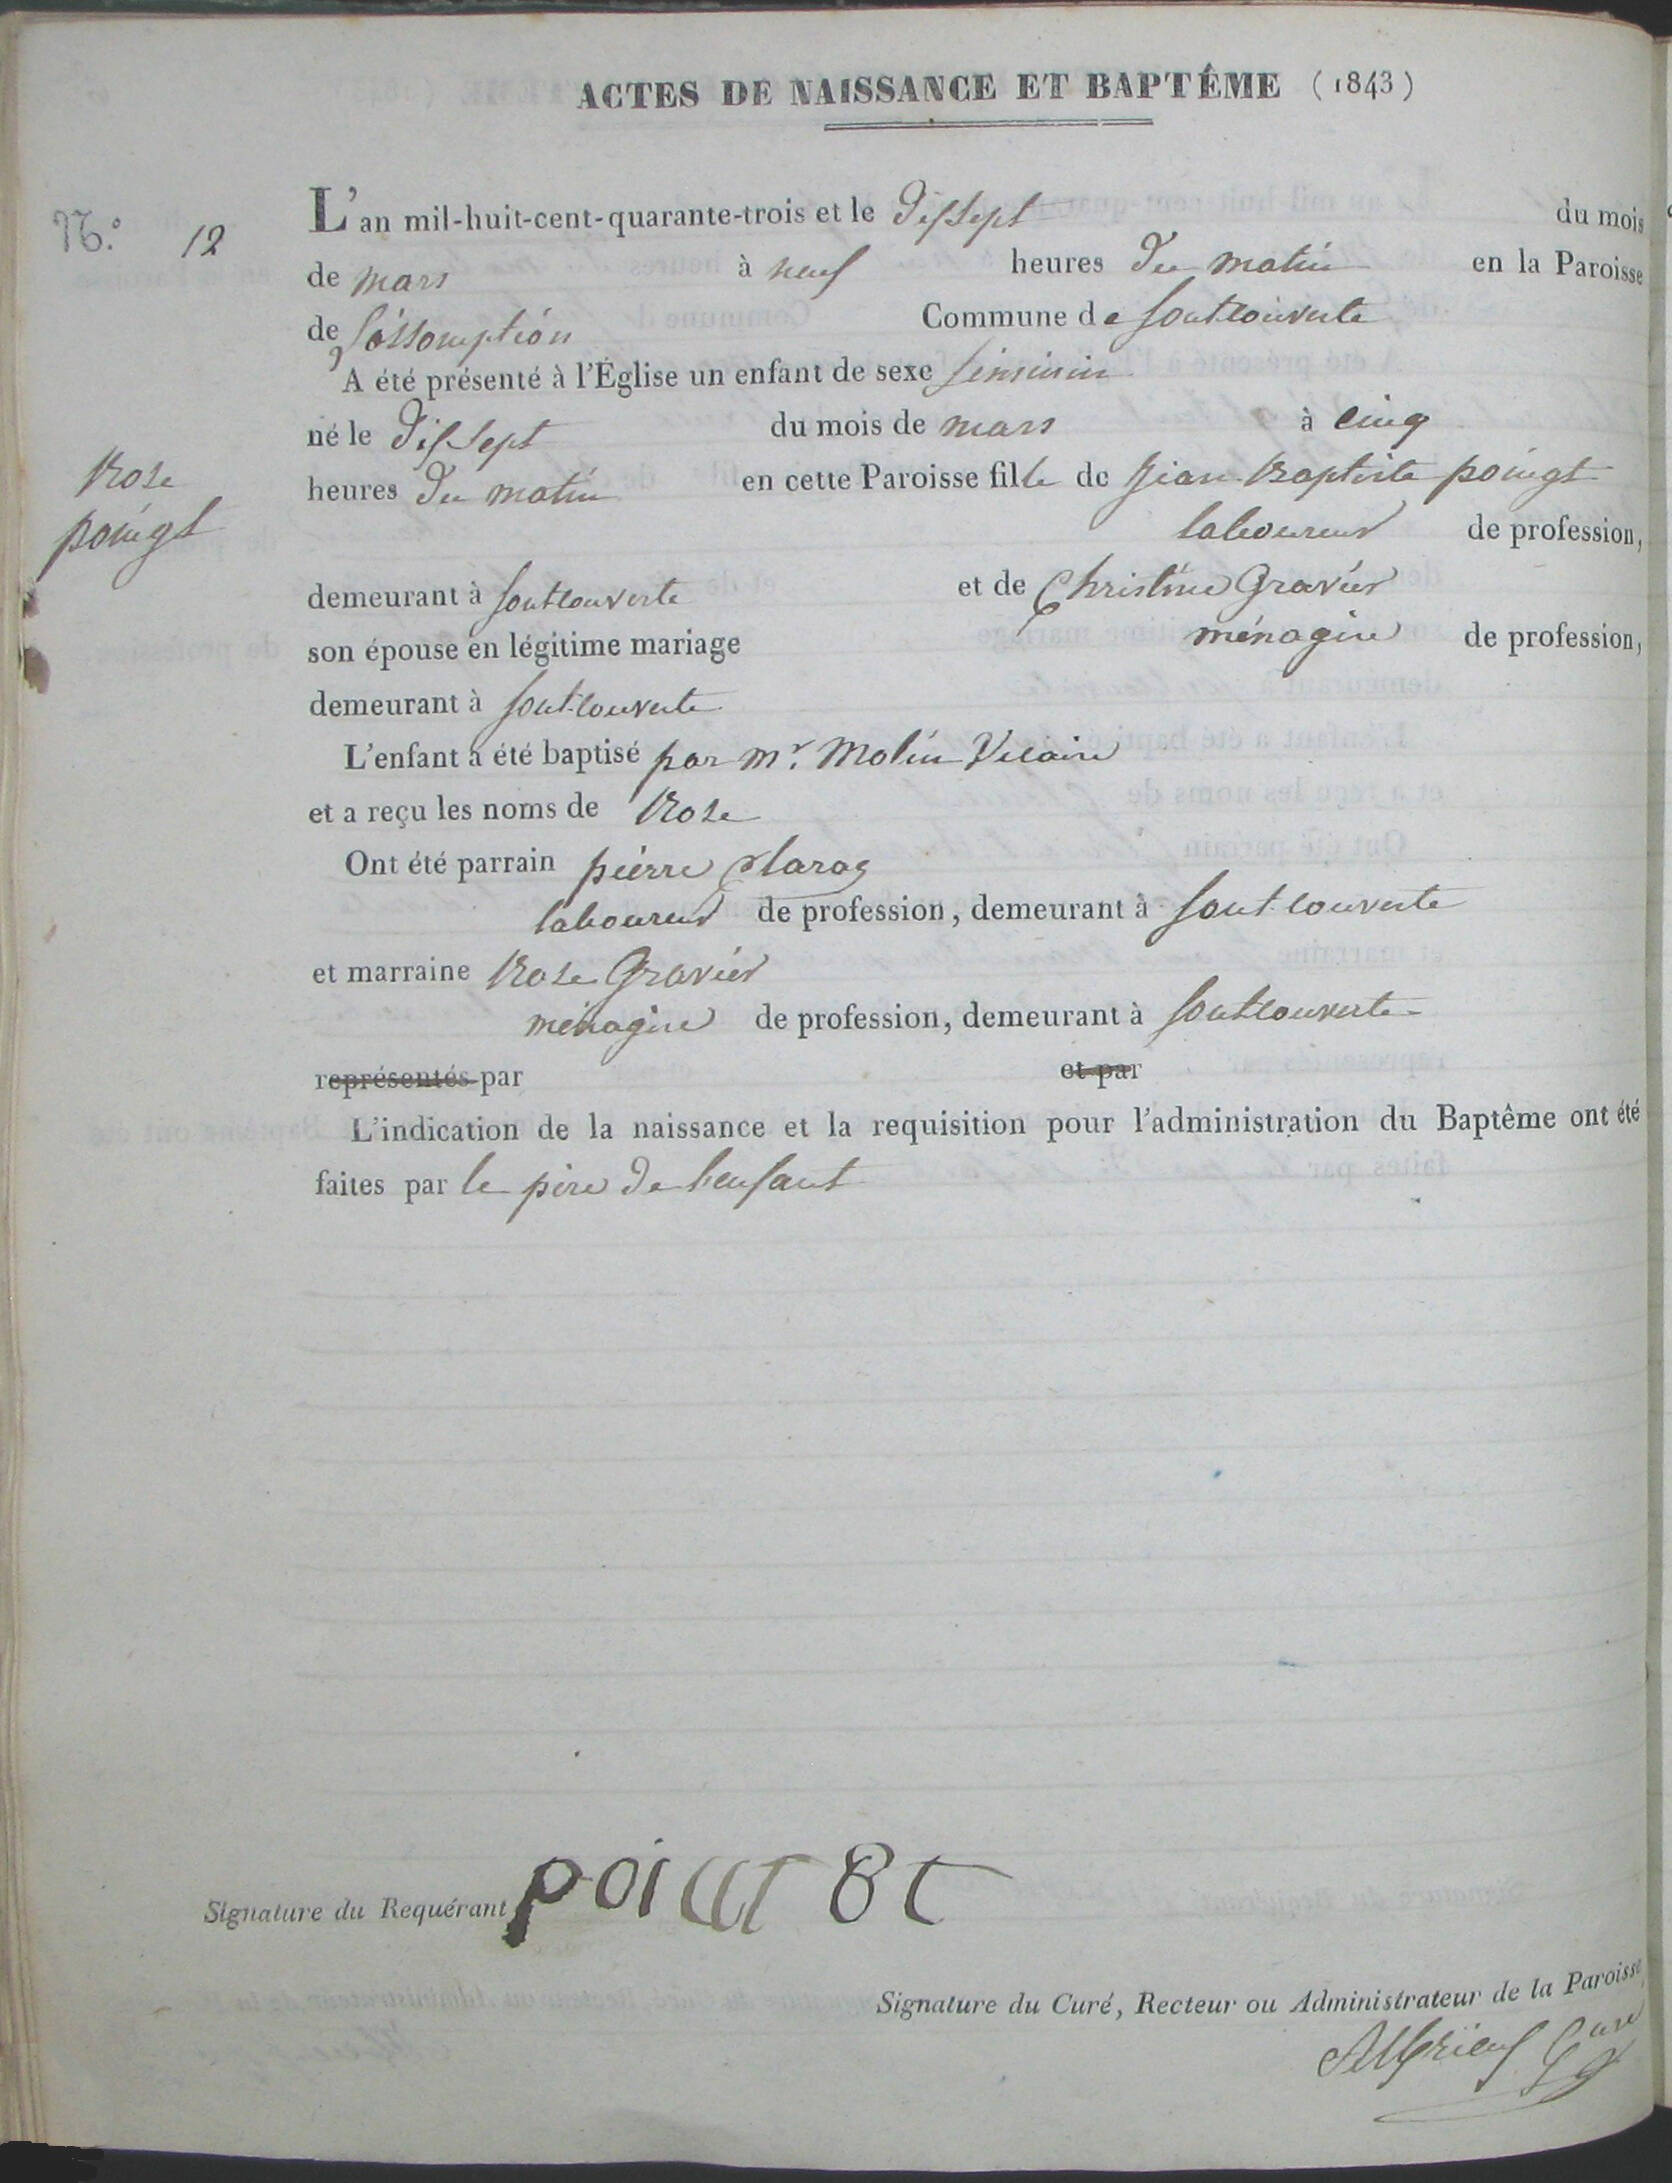 ACTES DE NAISSANCE ET BAPTÊME (1843)
N.º 12
L'an mil-huit-cent-quarante-trois et le dissept du mois
de mars à neuf heures du matin en la Paroisse
de l'assomption Commune de fontcouverte
A été présenté à l'Église un enfant de sexe feminin
né le dissept du mois de mars à cinq
Rose
poingt
heures du matin en cette Paroisse fille de Jean Baptiste poingt
laboureur de profession,
demeurant à fontcouverte et de Christine Gravier
son épouse en légitime mariage ménagère de profession,
demeurant à fontcouverte
L'enfant a été baptisé par mr. Molin Vicaire
et a reçu les noms de Rose
Ont été parrain pierre
laboureur de profession, demeurant à fontcouverte
et marraine Rose Gravier
ménagère de profession, demeurant à fontcouverte
représentés par et par
L'indication de la naissance et la requisition pour l'administration du Baptême ont été
faites par le père de l'enfant
Signature du Requérant
Signature du Curé, Recteur ou Administrateur de la Paroisse,
Curé